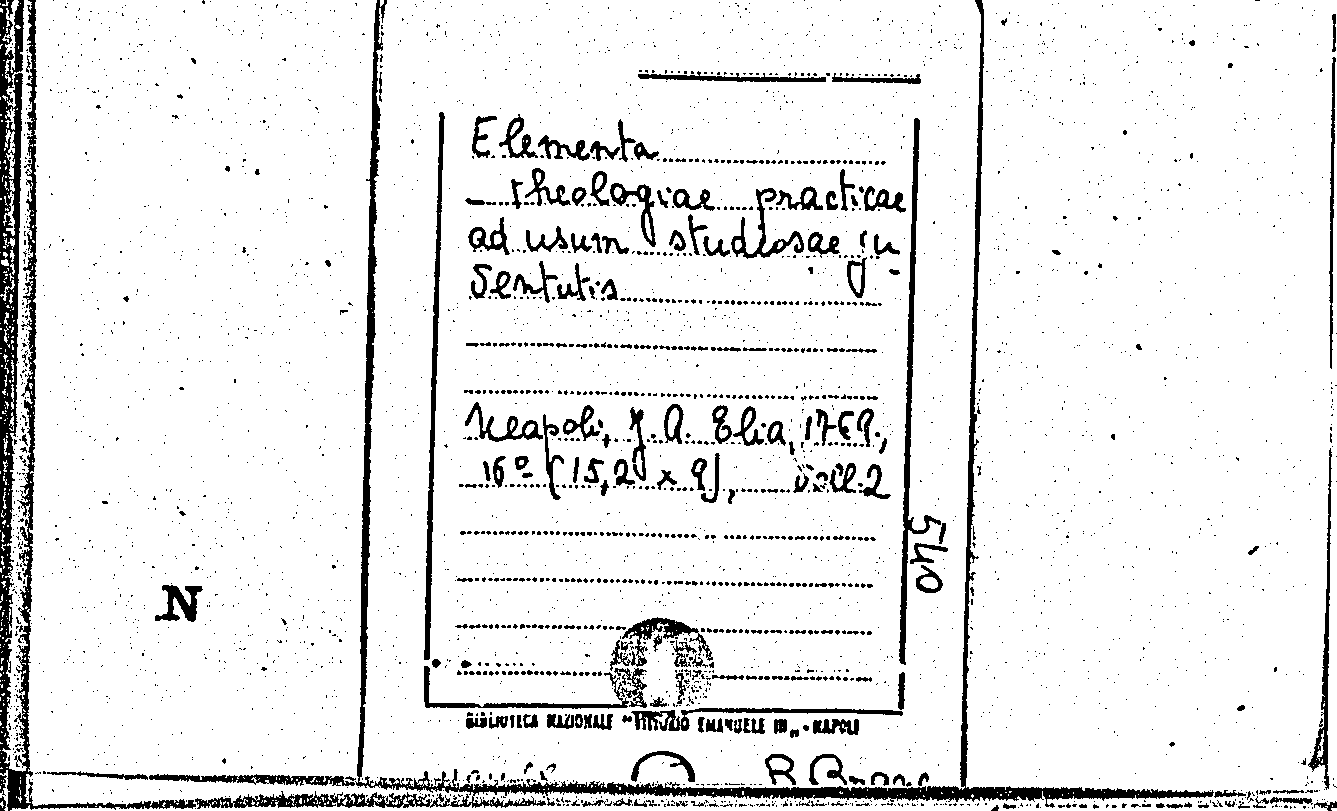 Elementa
- theologiae practicae
ad usum studiosae ju-
ventutis
Neapoli, J. A. Elia, 1769.,
16º [15,2 x 9], voll. 2
540
N
BIBLIOTECA NAZIONALE "VITTORIO EMANUELE III" - NAPOLI